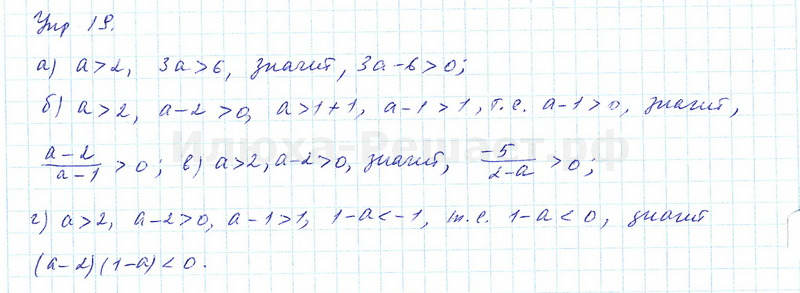 Упр 19.
а) a>2, 3a>6, значит, 3a-6>0;
б) a>2, a-2>0, a>1+1, a-1>1, т.е. a-1>0, значит,
\frac{a-2}{a-1}>0; в) a>2, a-2>0, значит, \frac{-5}{2-a}>0;
г) a>2, a-2>0, a-1>1, 1-a<-1, т.е. 1-a<0, значит
(a-2)(1-a)<0.
Илюха-Решает.рф